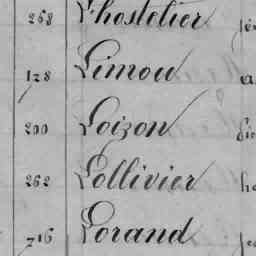 268 Lhostelier
128 Limou
200 Loizon
262 Lollivier
716 Lorand